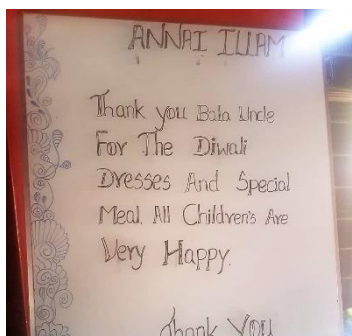 ANNAI ILLAM
Thank you Bala Uncle
For The Diwali
Dresses And Special
Meal. All Children's Are
Very Happy.
Thank You